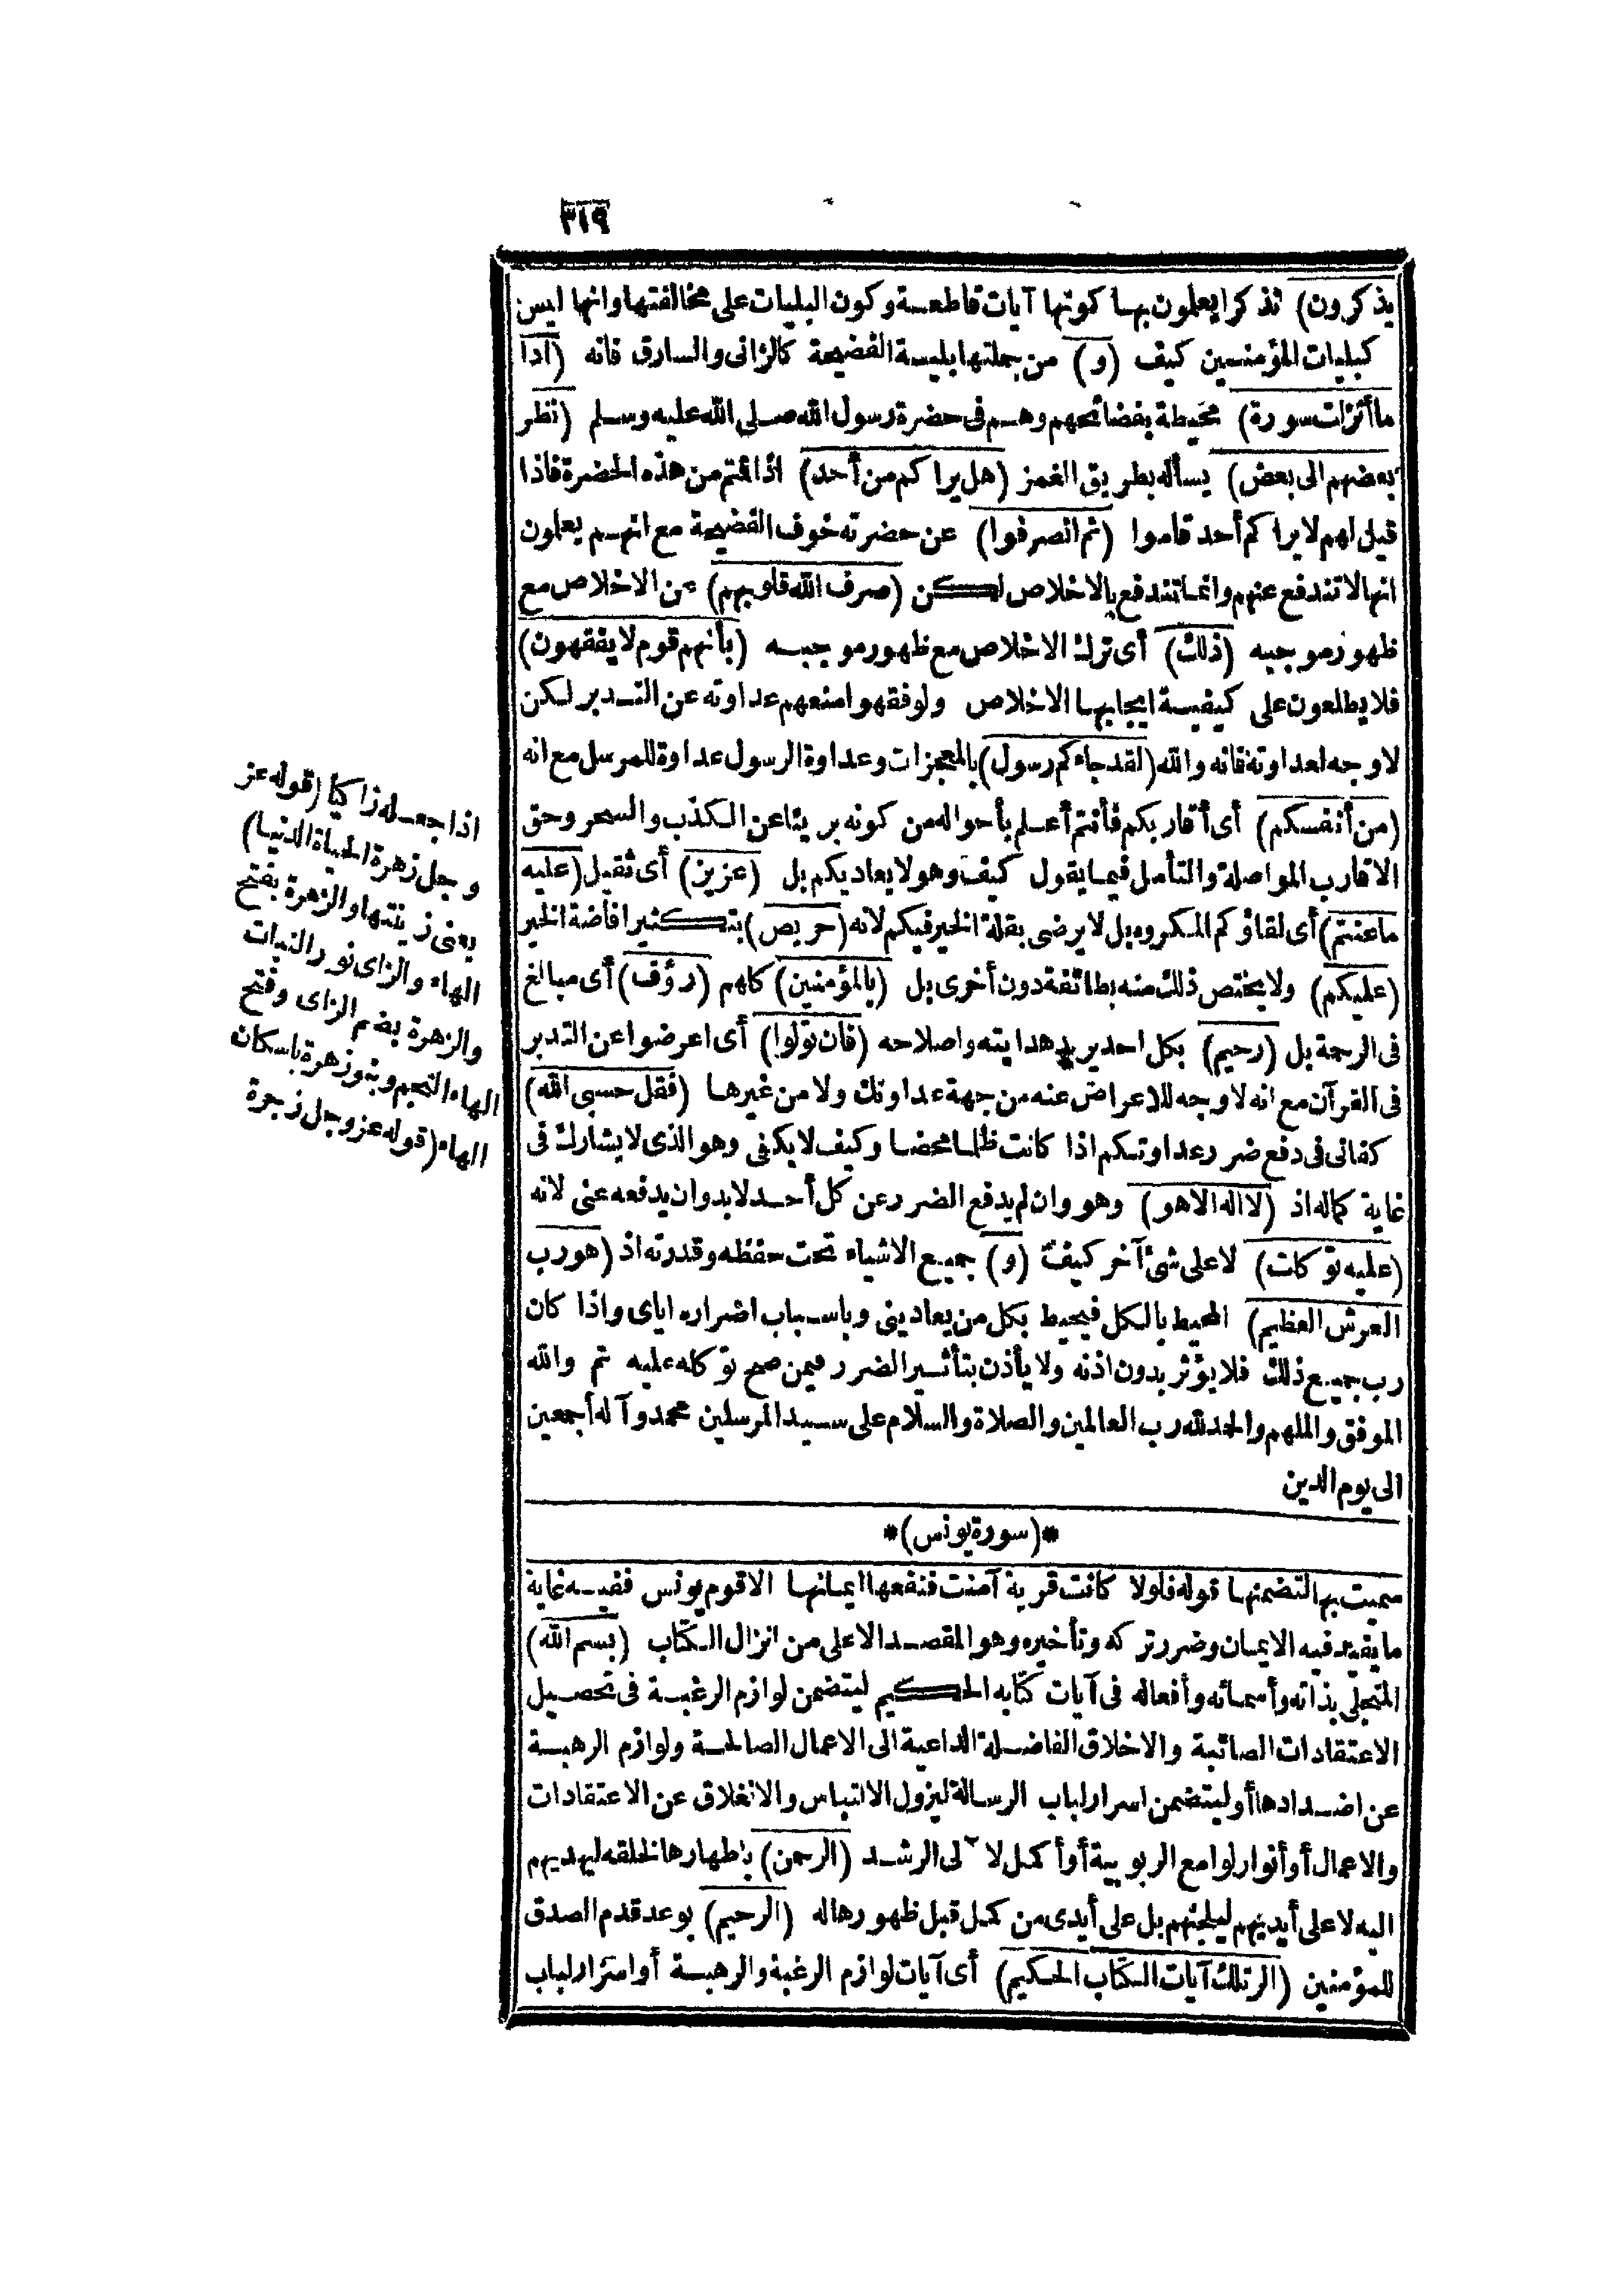 ٣١٩
يذكرون) تذكرا يعلمون بها كونها آيات قاطعة وكون البليات على مخالفتها وانها ليس
كبليات المؤمنين كيف (و) من جملتها بلية الفضيحة كالزانى والسارق فانه (اذا
ما أنزلت سورة) محيطة بفضائحهم وهم فى حضرة رسول الله صلى الله عليه وسلم (نظر
بعضهم الى بعض) يسأله بطريق الغمز (هل يراكم من أحد) اذا قمتم من هذه الحضرة فاذا
قيل لهم لا يراكم أحد قاموا (ثم انصرفوا) عن حضرته خوف الفضيحة مع انهم يعلمون
انها لا تندفع عنهم وانما تندفع بالاخلاص لكن (صرف الله قلوبهم) عن الاخلاص مع
ظهور موجبه (ذلك) أى ترك الاخلاص مع ظهور موجبه (بأنهم قوم لا يفقهون)
فلا يطلعون على كيفية ايجابها الاخلاص ولو فقهوا منعهم عداوته عن التدبر لكن
لا وجه لعداوته فانه والله (لقد جاءكم رسول) بالمعجزات وعداوة الرسول عداوة للمرسل مع انه
(من أنفسكم) أى أقاربكم فأنتم أعلم بأحواله من كونه بريئا عن الكذب والسحر وحق
الاقارب المواصلة والتأمل فيما يقول كيف وهو لا يعاديكم بل (عزيز) أى ثقيل (عليه
ما عنتم) أى لقاؤكم المكروه بل لا يرضى بقلة الخير فيكم لانه (حريص) بتكثير افاضة الخير
(عليكم) ولا يختص ذلك منه بطائفة دون أخرى بل (بالمؤمنين) كلهم (رؤف) أى مبالغ
فى الرحمة بل (رحيم) بكل احد يريد هدايته واصلاحه (فان تولوا) أى اعرضوا عن التدبر
فى القرآن مع انه لا وجه للاعراض عنه من جهة عداوتك ولا من غيرها (فقل حسبى الله)
كفانى فى دفع ضرر عداوتكم اذا كانت ظلما محضا وكيف لا يكفى وهو الذى لا يشارك فى
غاية كماله اذ (لا اله الا هو) وهو وان لم يدفع الضرر عن كل أحد لابد وان يدفعه عنى لانه
(عليه توكلت) لا على شئ آخر كيف (و) جميع الاشياء تحت حفظه وقدرته اذ (هو رب
العرش العظيم) المحيط بالكل فيحيط بكل من يعادينى وباسباب اضراره اياى واذا كان
رب جميع ذلك فلا يؤثر بدون اذنه ولا يأذن بتأثير الضرر فيمن صح توكله عليه تم والله
الموفق والملهم والحمد لله رب العالمين والصلاة والسلام على سيد المرسلين محمد وآله أجمعين
الى يوم الدين
*(سورة يونس)*
سميت بها لتضمنها قوله فلولا كانت قرية آمنت فنفعها ايمانها الا قوم يونس ففيه غاية
ما يفيد فيه الايمان وضرر تركه وتأخيره وهو المقصد الاعلى من انزال الكتاب (بسم الله)
المتجلى بذاته وأسمائه وأفعاله فى آيات كتابه الحكيم ليتضمن لوازم الرغبة فى تحصيل
الاعتقادات الصائبة والاخلاق الفاضلة الداعية الى الاعمال الصالحة ولوازم الرهبة
عن اضدادها أو ليتضمن اسرار لباب الرسالة ليزول الالتباس والانغلاق عن الاعتقادات
والاعمال أو أنوار لوامع الربوبية أو أكمل لآلى الرشد (الرحمن) باظهارها لخلقه ليهديهم
اليه لا على أيديهم ليلجئهم بل على أيدى من كمل قبل ظهورها له (الرحيم) بوعد قدم الصدق
للمؤمنين (الر تلك آيات الكتاب الحكيم) أى آيات لوازم الرغبة والرهبة أو اسرار لباب
اذا جعله زاكيا (قوله عز
وجل زهرة الحياة الدنيا)
يعنى زينتها والزهرة بفتح
الهاء والزاى نور النبات
والزهرة بضم الزاى وفتح
الهاء النجم وبنو زهرة باسكان
الهاء (قوله عز وجل زجرة